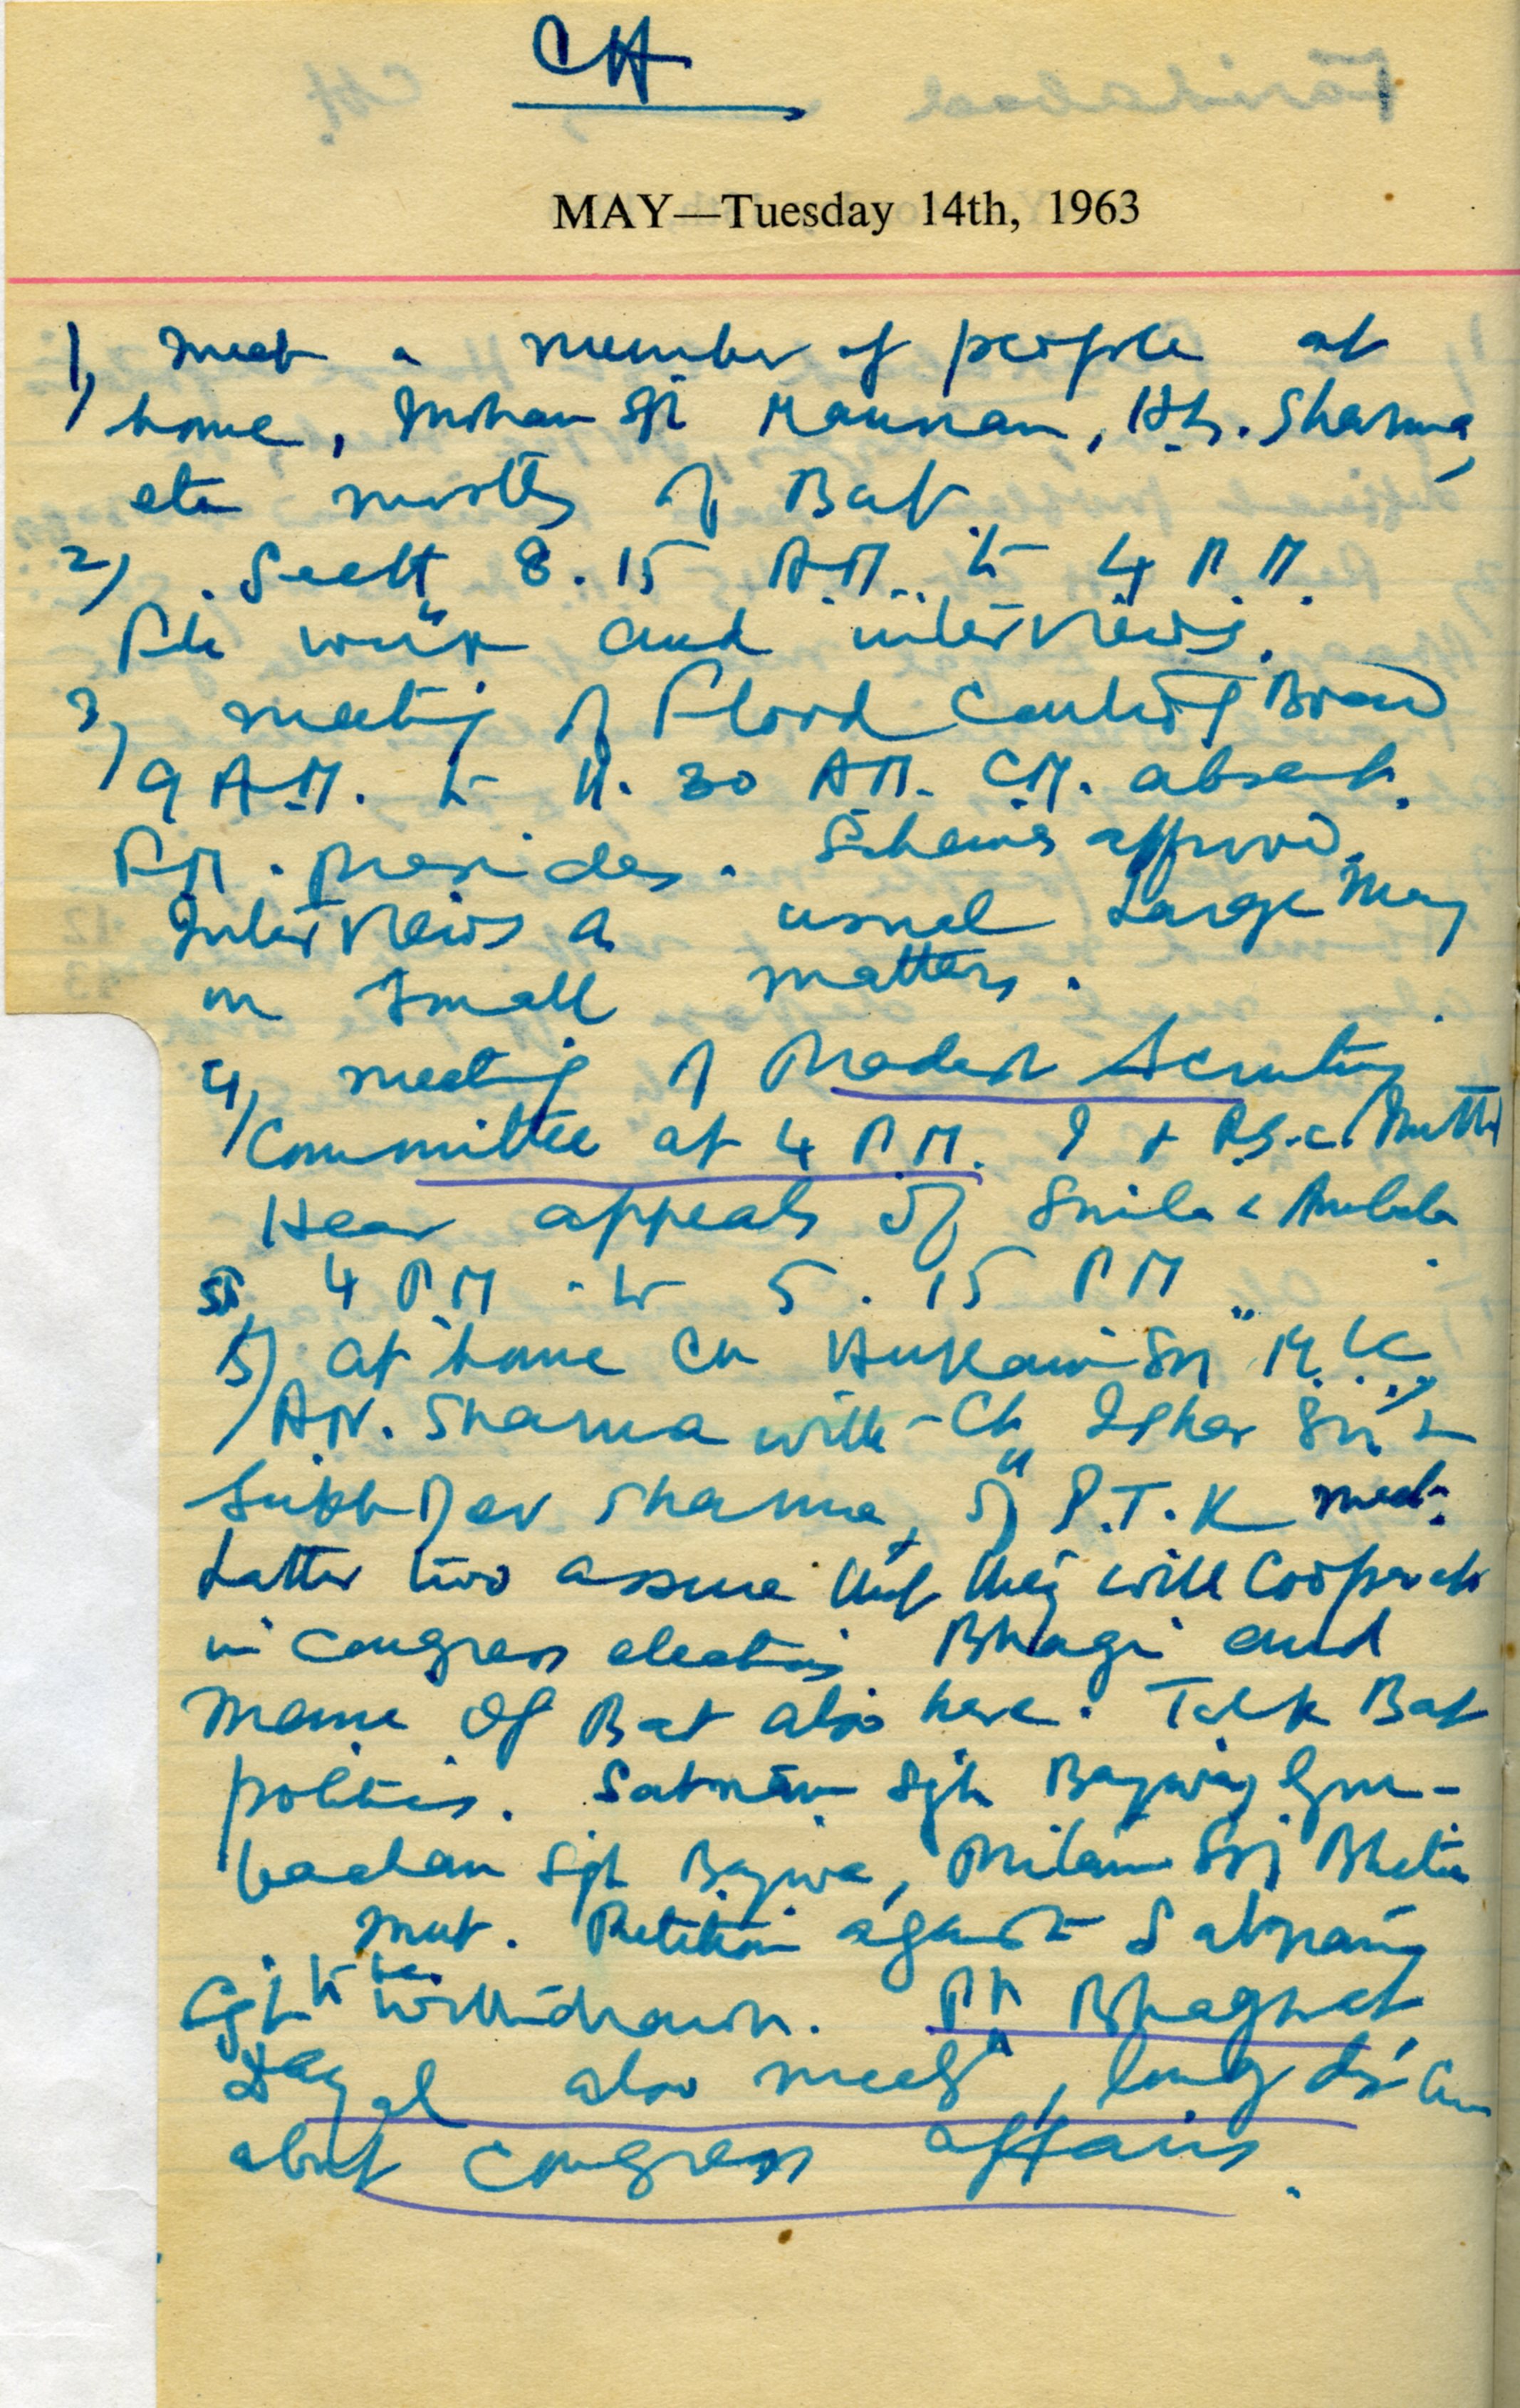 CH
MAY—Tuesday 14th, 1963
1) meet a number of people at
home, Mohan Sgh, H.L. Sharma,
etc mostly of Bat.
2) Sectt 8.15 A.M. to 4 P.M.
File work and interviews.
3) meeting of Flood Control Board
9 A.M. to 11.30 A.M. C.M. absent.
P.M. presides. Schemes approved.
Interviews as usual large many
on small matters.
4) meeting of Pradesh Scrutiny
Committee at 4 P.M. I &
Hear appeals of & Ambala
4 PM to 5.15 PM
5) at home Ch
A.N. Sharma with Ch Isher Sgh &
Sukh Dev Sharma, of P.T.K meet.
Latter two assure that they will Cooperate
in Congress elections Bhagi and
of Bat also here. Talk Bat
politics. Satnam Sgh Bajwa, Gur-
bachan Sgh Bajwa, Pritam Sgh Bhatia
met. Petition against Satnam
Sgh to be withdrawn. Pt Bhagwat
Dayal also meets, long
about Congress affairs.